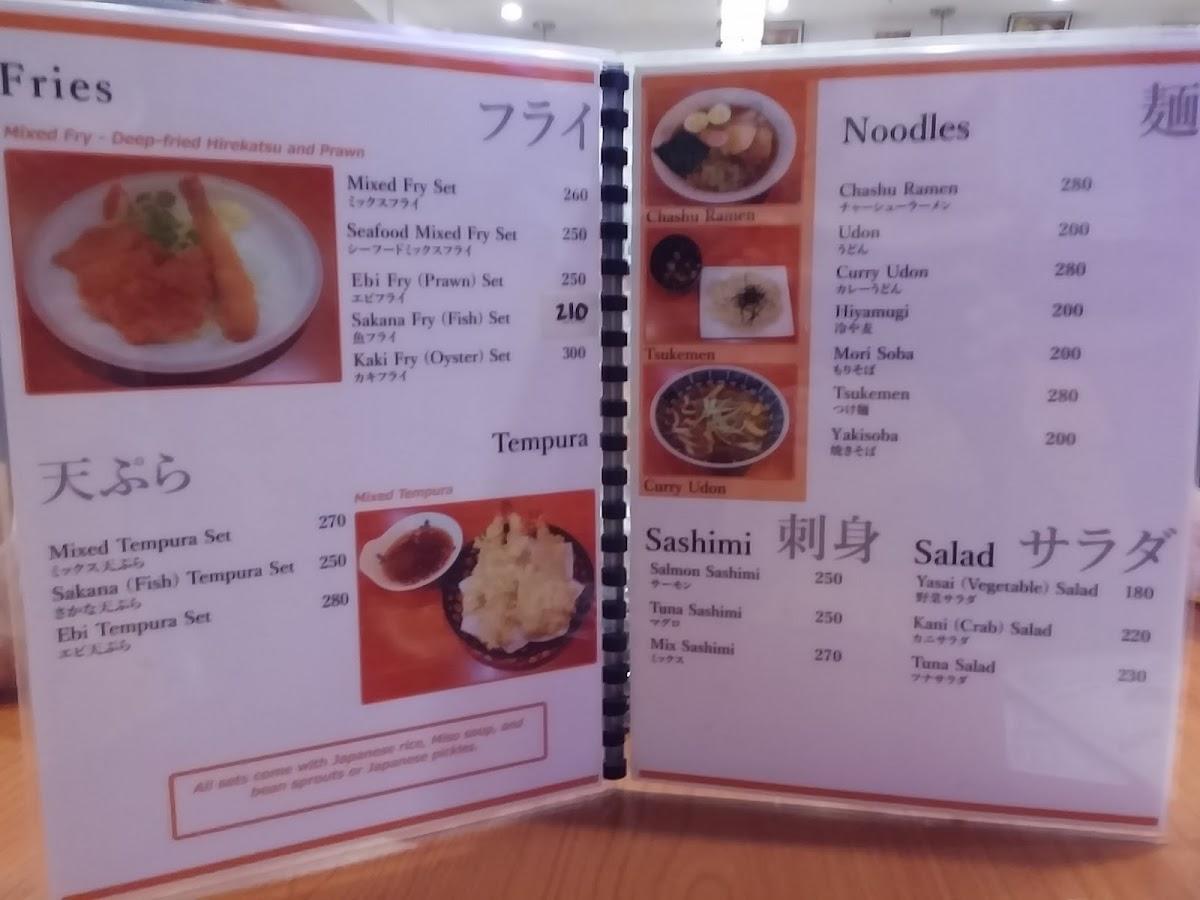 Fries
フライ
Mixed Fry - Deep-fried Hirekatsu and Prawn
Mixed Fry Set 260
ミックスフライ
Seafood Mixed Fry Set 250
シーフードミックスフライ
Ebi Fry (Prawn) Set 250
エビフライ
Sakana Fry (Fish) Set 210
魚フライ
Kaki Fry (Oyster) Set 300
カキフライ
Tempura
天ぷら
Mixed Tempura
Mixed Tempura Set 270
ミックス天ぷら
Sakana (Fish) Tempura Set 250
さかな天ぷら
Ebi Tempura Set 280
エビ天ぷら
All sets come with Japanese rice, Miso soup, and
bean sprouts or Japanese pickles.
Chashu Ramen
Tsukemen
Curry Udon
Noodles
麺
Chashu Ramen 280
チャーシューラーメン
Udon 200
うどん
Curry Udon 280
カレーうどん
Hiyamugi 200
冷や麦
Mori Soba 200
もりそば
Tsukemen 280
つけ麺
Yakisoba 200
焼きそば
Sashimi 刺身
Salmon Sashimi 250
サーモン
Tuna Sashimi 250
マグロ
Mix Sashimi 270
ミックス
Salad サラダ
Yasai (Vegetable) Salad 180
野菜サラダ
Kani (Crab) Salad 220
カニサラダ
Tuna Salad 230
ツナサラダ